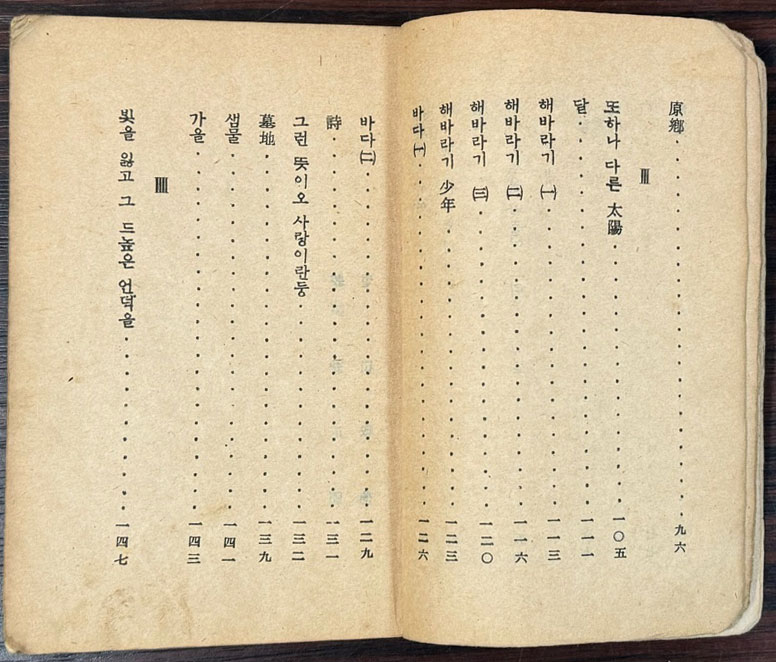 原鄕 ・・・・・・ 九六
Ⅲ
또하나 다른 太陽 ・・・・・・ 一〇五
달 ・・・・・・ 一一一
해바라기 ㈠ ・・・・・・ 一一三
해바라기 ㈡ ・・・・・・ 一一六
해바라기 ㈢ ・・・・・・ 一二〇
해바라기 少年 ・・・・・・ 一二三
바다㈠ ・・・・・・ 一二六
바다㈡ ・・・・・・ 一二九
詩 ・・・・・・ 一三一
그런 뜻이오 사랑이란둥 ・・・・・・ 一三二
墓地 ・・・・・・ 一三九
샘물 ・・・・・・ 一四一
가을 ・・・・・・ 一四三
IIII
빛을 잃고 그 드높은 언덕을 ・・・・・・ 一四七